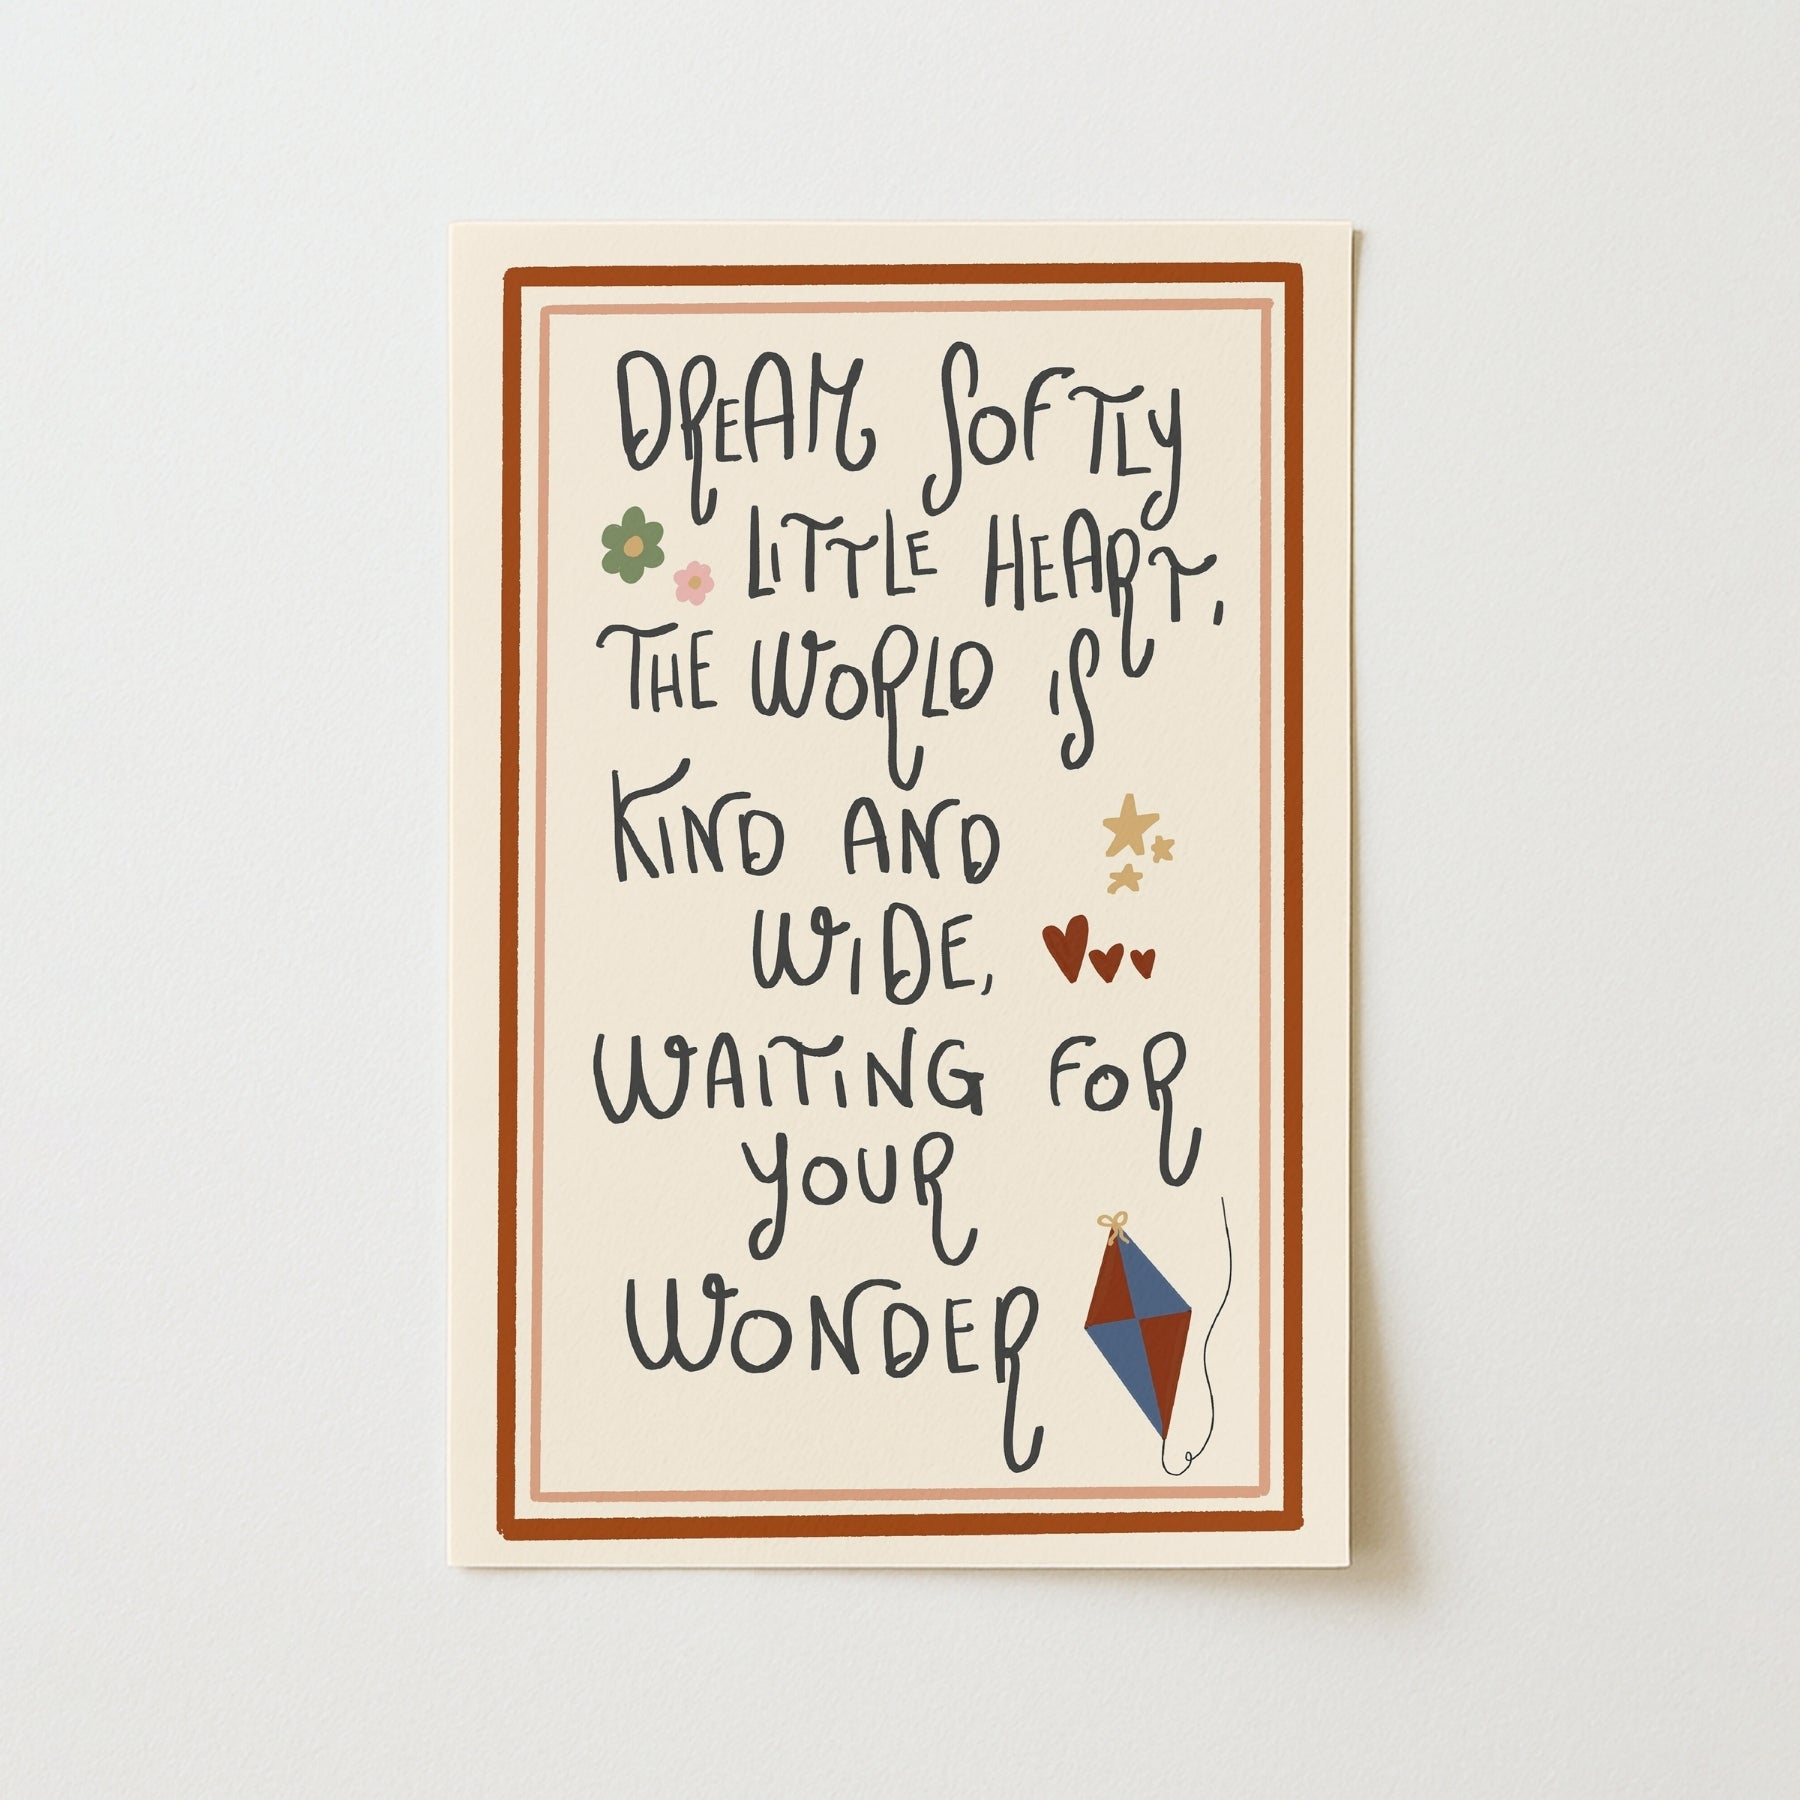 DREAM SOFTLY
LITTLE HEART,
THE WORLD IS
KIND AND
WIDE,
WAITING FOR
YOUR
WONDER